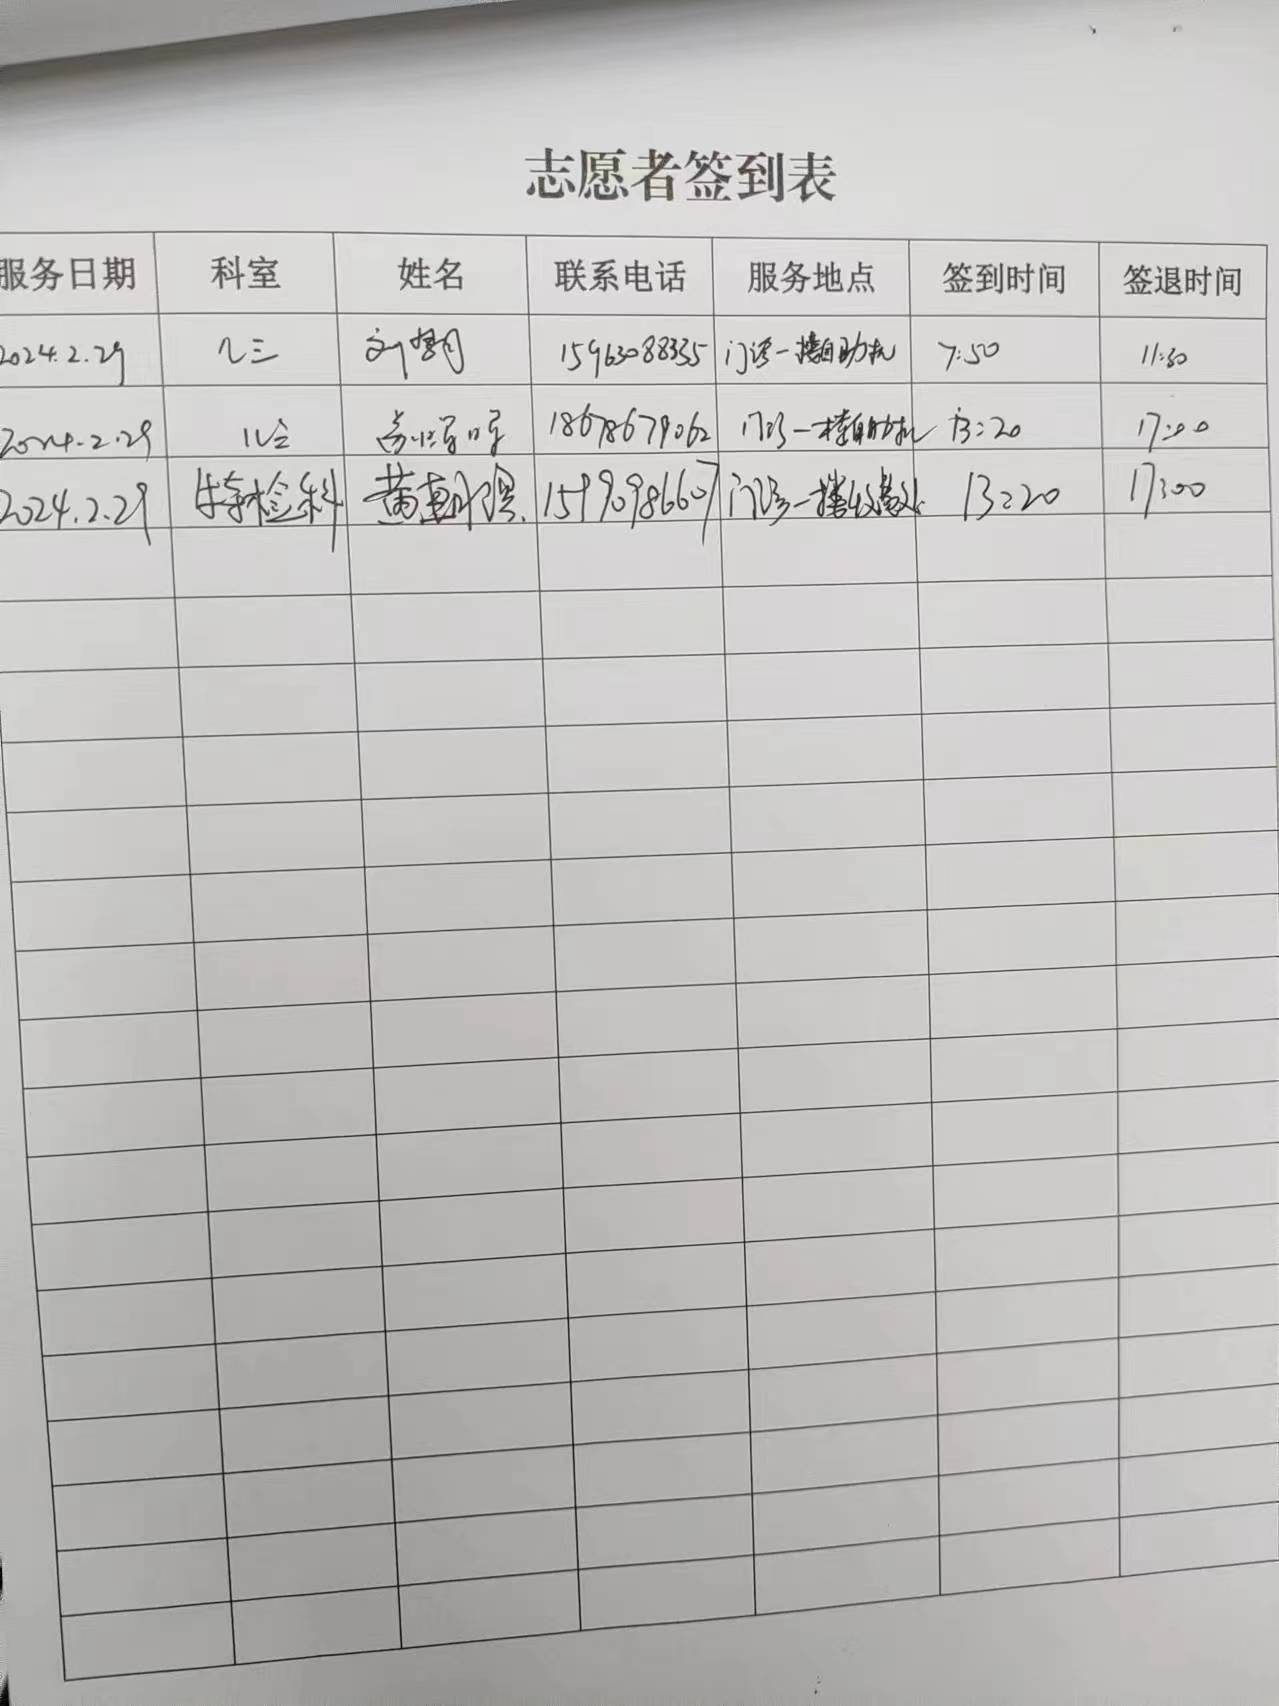 志愿者签到表
服务日期 科室 姓名 联系电话 服务地点 签到时间 签退时间
2024.2.29 儿三 刘 15963088335 门诊一楼自助机 7:50 11:30
2024.2.29 18678679062 门诊一楼自助机 13:20 17:00
2024.2.29 特检科 黄 15990986607 门诊一楼收 13:20 17:00